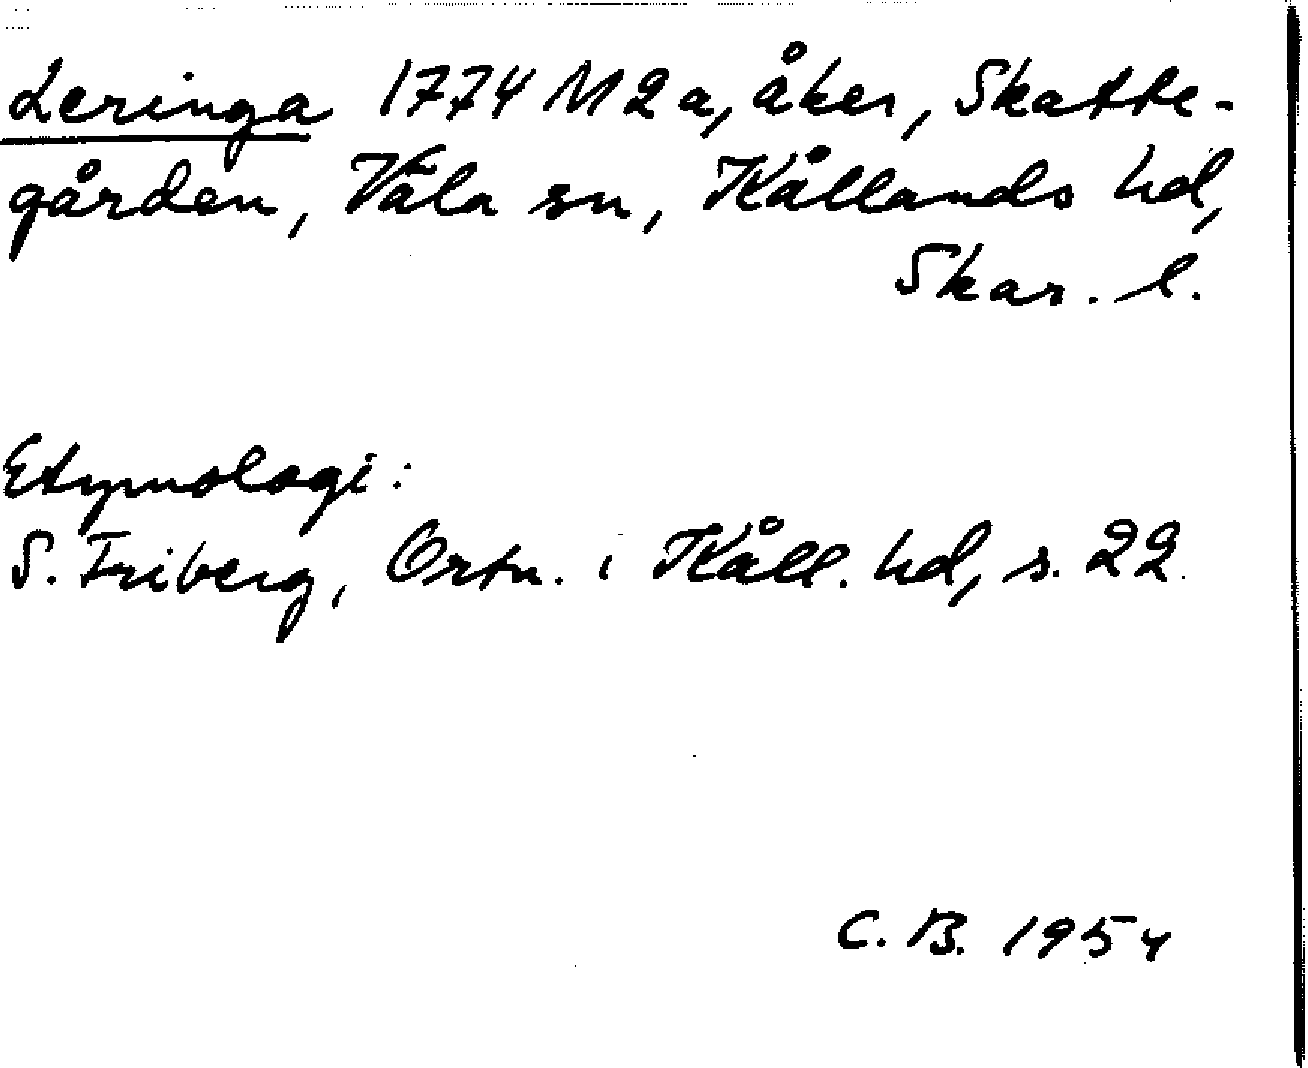 Leringa 1774 M2a, åker, Skatte-
gården, Väla sn, Kållands hd,
Skar. l.
Etymologi:
S. Friberg, Ortn. i Kåll. hd, s. 22.
C. B. 1954